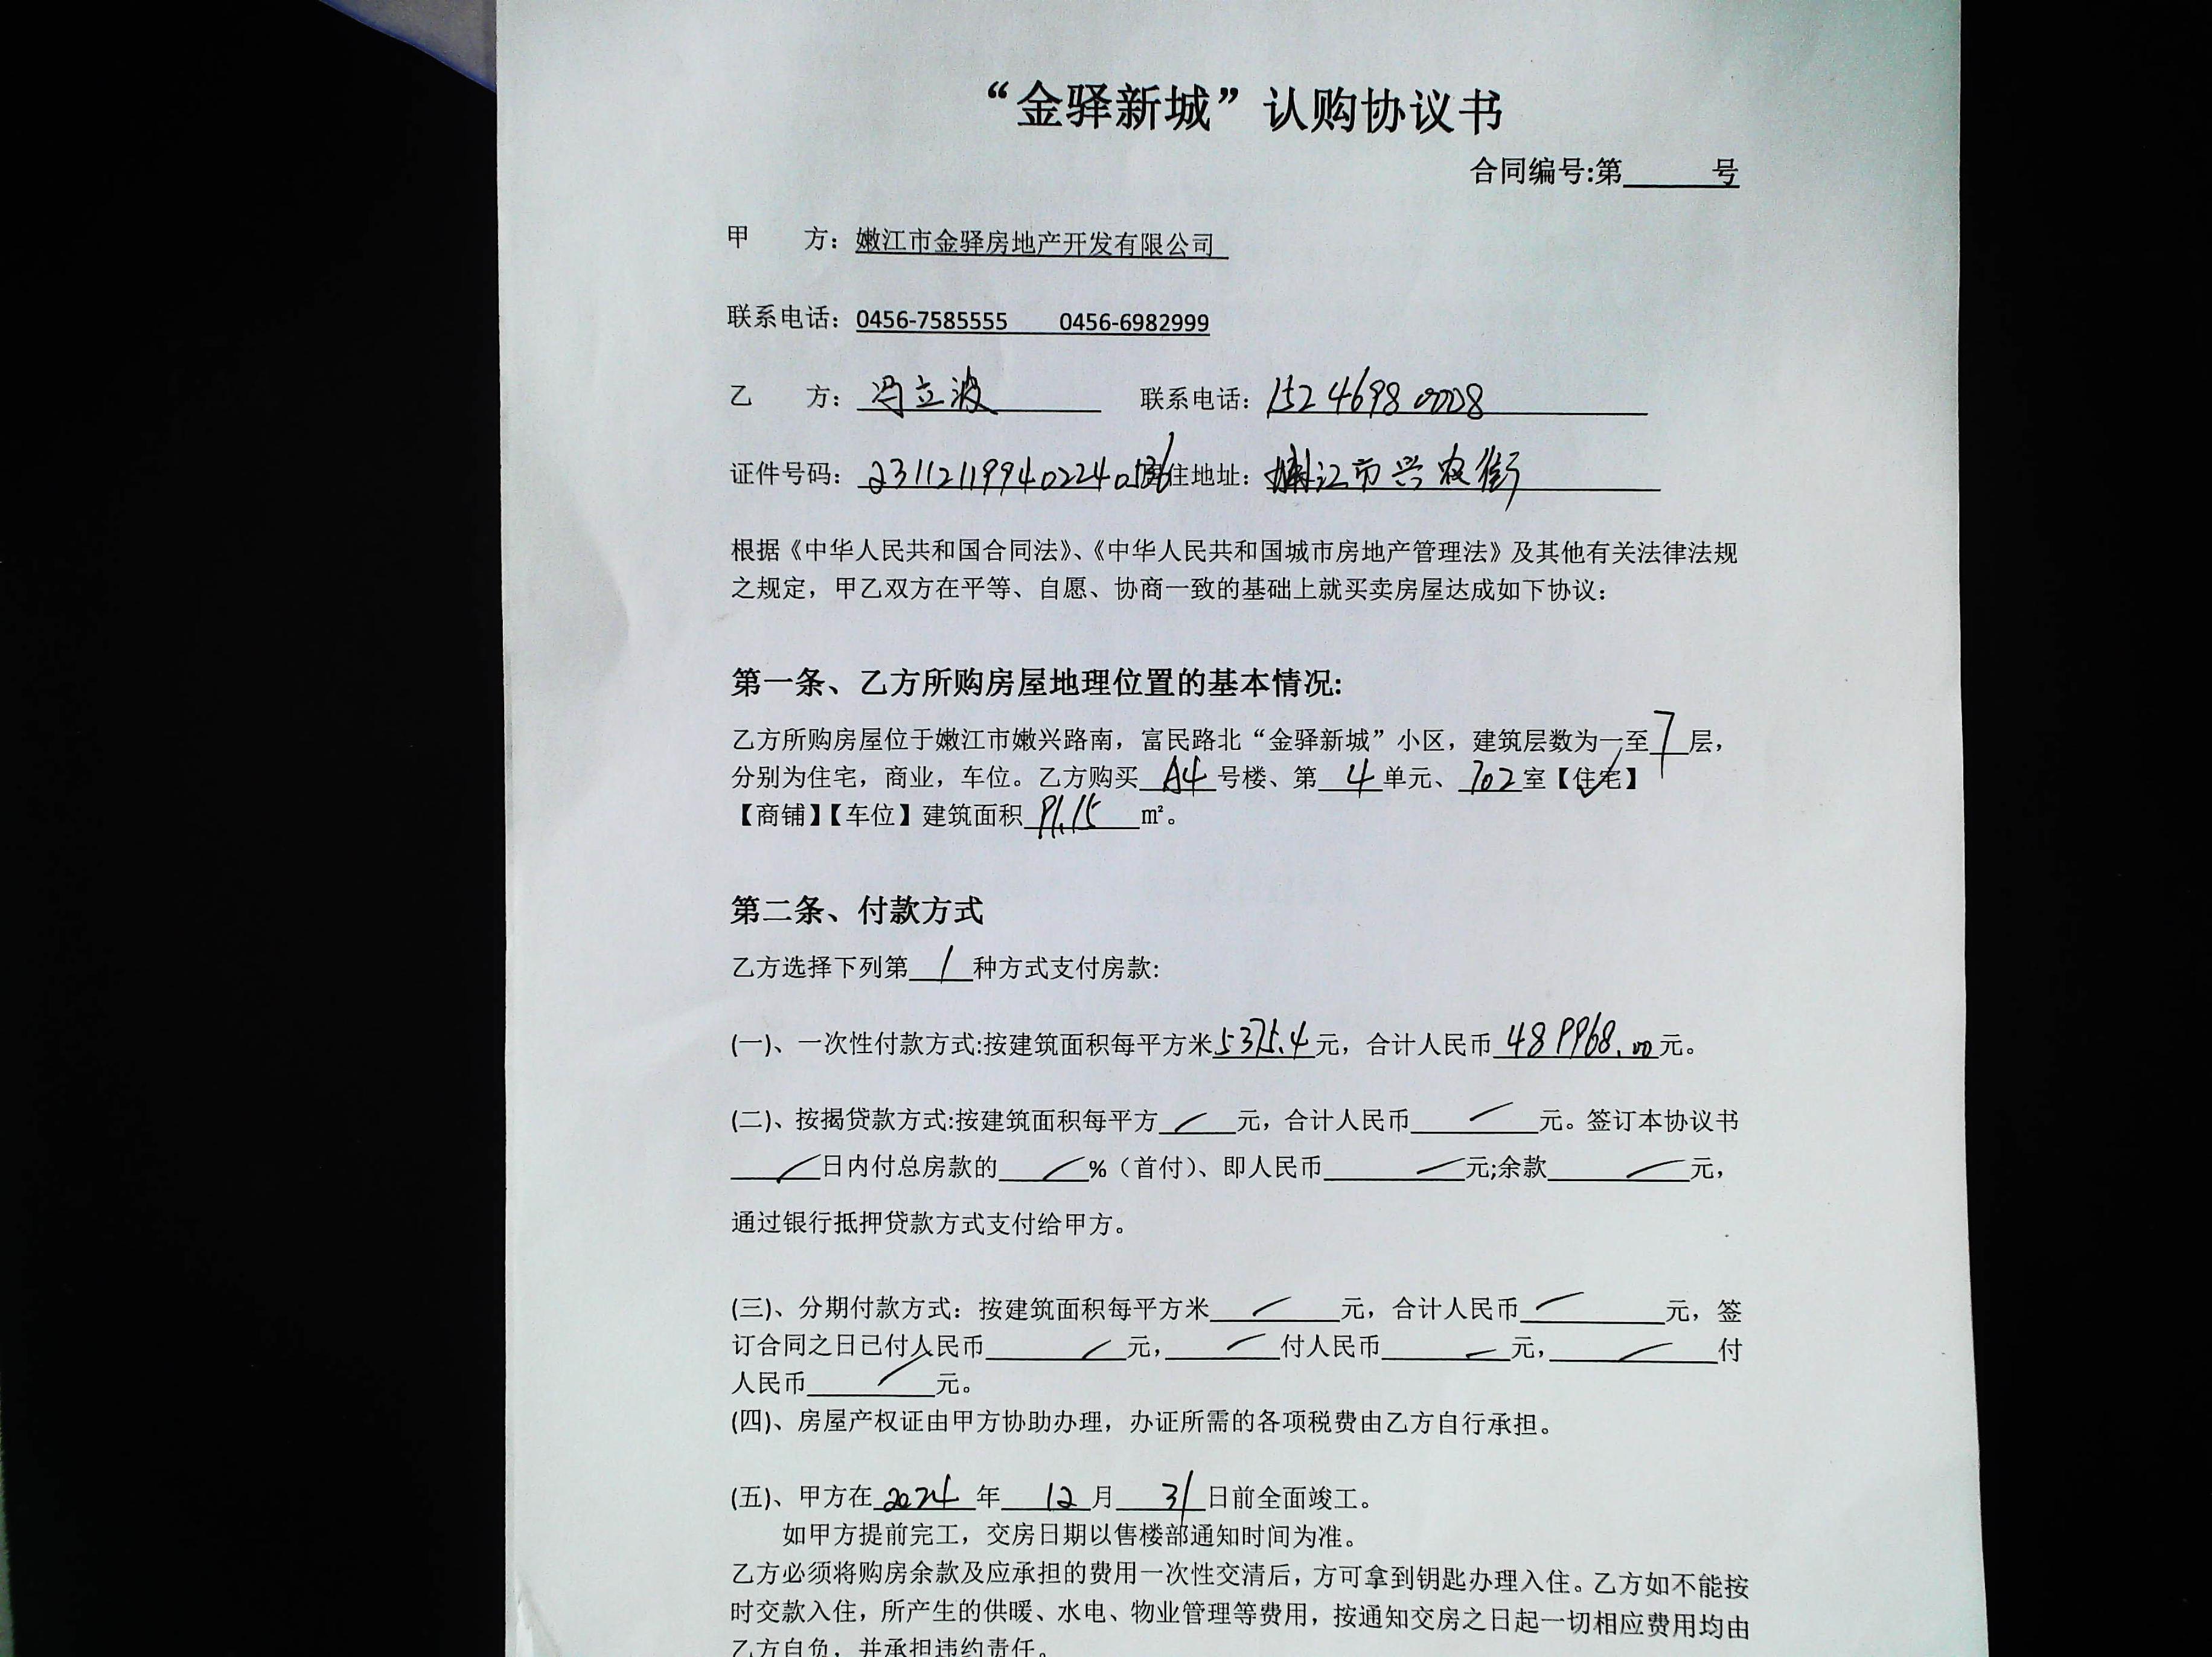 “金驿新城”认购协议书
合同编号:第______号
甲　　方：嫩江市金驿房地产开发有限公司
联系电话：0456-7585555　　0456-6982999
乙　　方：冯立波　　联系电话：15246980008
证件号码：231121199402240136 居住地址：嫩江市兴农街
根据《中华人民共和国合同法》、《中华人民共和国城市房地产管理法》及其他有关法律法规
之规定，甲乙双方在平等、自愿、协商一致的基础上就买卖房屋达成如下协议：
第一条、乙方所购房屋地理位置的基本情况:
乙方所购房屋位于嫩江市嫩兴路南，富民路北“金驿新城”小区，建筑层数为一至7层，
分别为住宅，商业，车位。乙方购买 A4 号楼、第 4 单元、702室【住宅】
【商铺】【车位】建筑面积 91.15 m²。
第二条、付款方式
乙方选择下列第 1 种方式支付房款:
(一)、一次性付款方式:按建筑面积每平方米5375.4元，合计人民币 489968.00元。
(二)、按揭贷款方式:按建筑面积每平方 / 元，合计人民币 / 元。签订本协议书
/ 日内付总房款的 / %（首付）、即人民币 / 元;余款 / 元，
通过银行抵押贷款方式支付给甲方。
(三)、分期付款方式：按建筑面积每平方米 / 元，合计人民币 / 元，签
订合同之日已付人民币 / 元， / 付人民币 / 元， / 付
人民币 / 元。
(四)、房屋产权证由甲方协助办理，办证所需的各项税费由乙方自行承担。
(五)、甲方在 2024 年 12 月 31 日前全面竣工。
如甲方提前完工，交房日期以售楼部通知时间为准。
乙方必须将购房余款及应承担的费用一次性交清后，方可拿到钥匙办理入住。乙方如不能按
时交款入住，所产生的供暖、水电、物业管理等费用，按通知交房之日起一切相应费用均由
乙方自负，并承担违约责任。